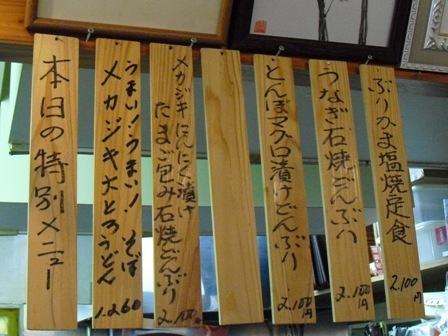 本日の特別メニュー
うまい!うまい! そば
メカジキ大とろうどん
1.260
メカジキにんにく漬け
たまご包み石焼どんぶり
2.100
とんぼマグロ漬けどんぶり
2.100円
うなぎ石焼どんぶり
2.100円
ぶりかま塩焼定食
2.100円